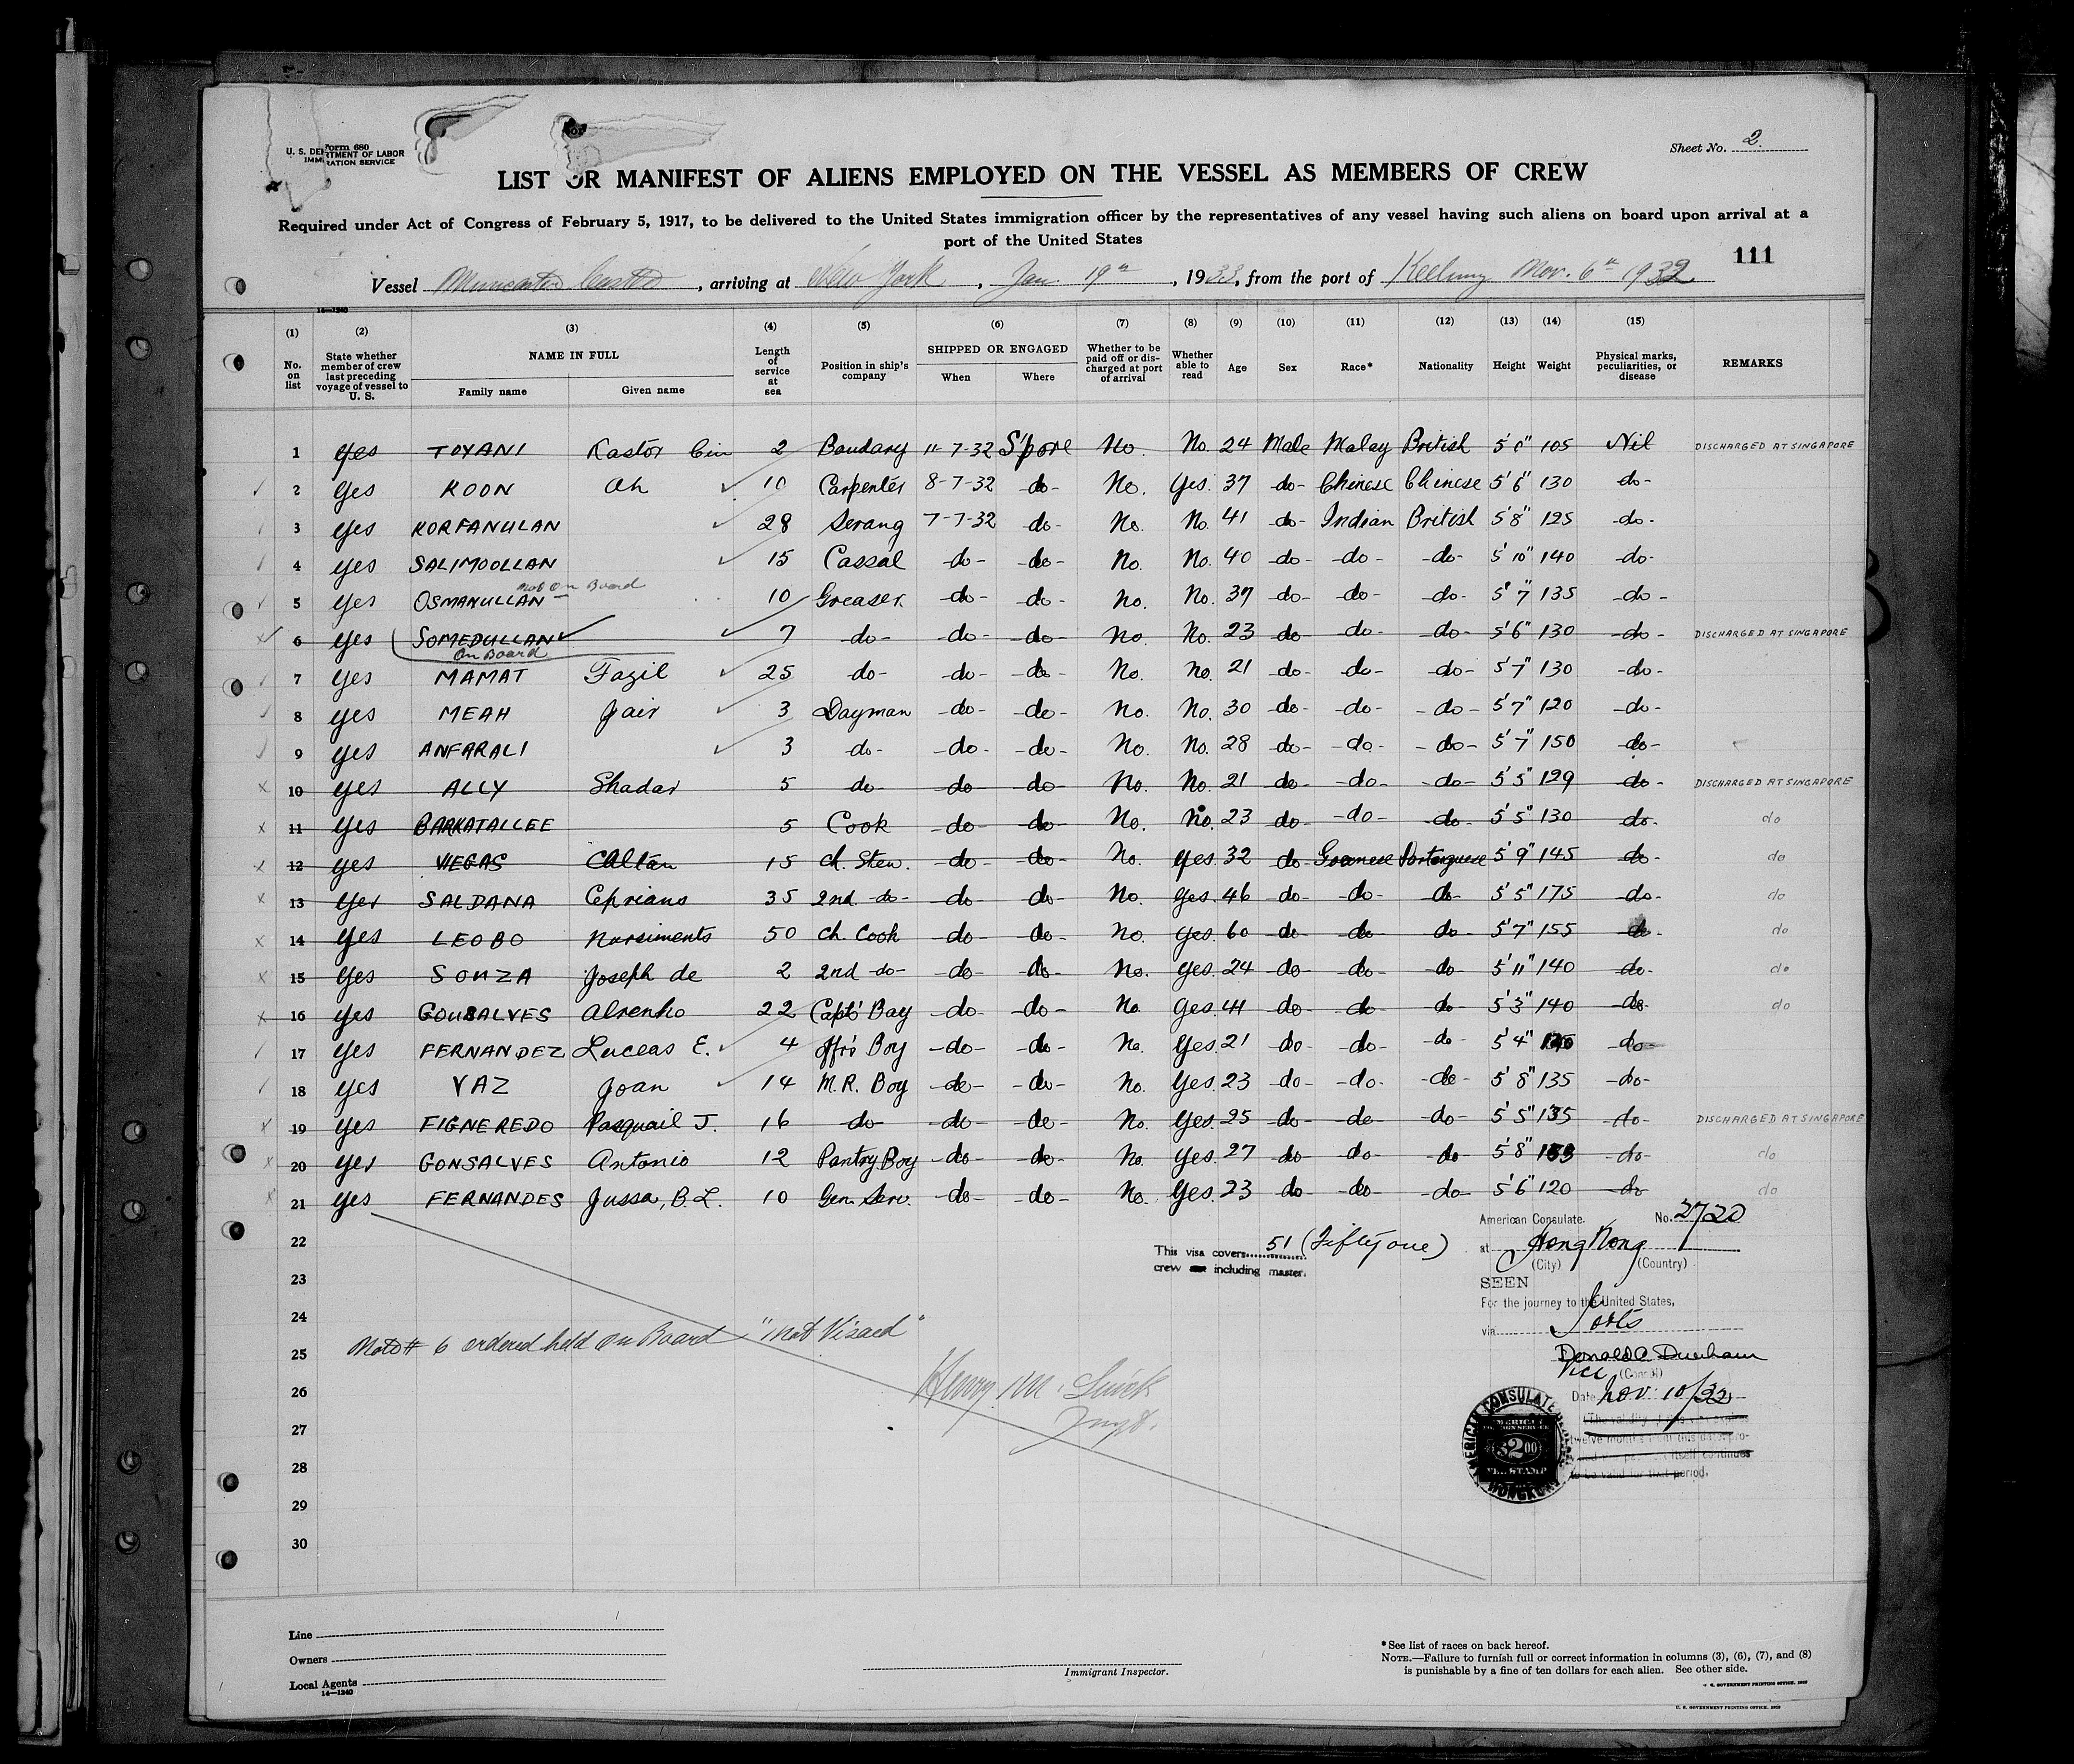 Form 680
U. S. DEPARTMENT OF LABOR
IMMIGRATION SERVICE
Sheet No. 2
LIST OR MANIFEST OF ALIENS EMPLOYED ON THE VESSEL AS MEMBERS OF CREW
Required under Act of Congress of February 5, 1917, to be delivered to the United States immigration officer by the representatives of any vessel having such aliens on board upon arrival at a
port of the United States
111
Vessel Muncaster Castle, arriving at New York, Jan 19th, 1933, from the port of Keelung Nov. 6th 1932
14—1240
(1) (2) (3) (4) (5) (6) (7) (8) (9) (10) (11) (12) (13) (14) (15)
No. on list State whether member of crew last preceding voyage of vessel to U. S. NAME IN FULL Family name Given name Length of service at sea Position in ship's company SHIPPED OR ENGAGED When Where Whether to be paid off or discharged at port of arrival Whether able to read Age Sex Race* Nationality Height Weight Physical marks, peculiarities, or disease REMARKS
1 yes TOYANI Kastor bin 2 Boudary 11-7-32 S'pore No. No. 24 Male Malay British 105 Nil DISCHARGED AT SINGAPORE
2 Yes KOON Ah 10 Carpenter 8-7-32 -do- No. Yes. 37 -do- Chinese Chinese 5'6" 130 do-
3 yes KORFANULAN 28 Serang 7-7-32 do- No. No. 41 -do- Indian British 5'8" 125 -do-
4 yes SALIMOOLLAN 15 Cassal -do- -do- No. No. 40 -do- -do- -do- 5'10" 140 -do-
not on Board
5 yes OSMANULLAN 10 Greaser -do- -do- No. No. 37 -do- -do- -do- 5'7 135 -do-
6 yes SOMEDULLAN 7 -do- -do- -do- No. No. 23 -do- -do- -do- 5'6" 130 -do- DISCHARGED AT SINGAPORE
On Board
7 yes MAMAT Fazil 25 do- -do- -do- No. No. 21 -do- -do- -do- 5'7" 130 -do-
8 yes MEAH Jair 3 Dayman -do- -do- No. No. 30 -do- -do- -do- 5'7" 120 -do-
9 yes ANFARALI 3 do- -do- -do- No. No. 28 -do- -do- -do- 5'7" 150 -do-
10 yes ALLY Shadar 5 do- -do- -do- No. No. 21 -do- -do- -do- 5'5" 129 -do- DISCHARGED AT SINGAPORE
11 yes BARKATALLEE 5 Cook -do- -do- No. No. 23 -do- -do- -do- 5'5" 130 do- do
12 yes VIEGAS Caltan 15 Ch. Stew. -do- -do- No. yes 32 do- Goanese Portuguese 5'9" 145 do- do
13 yes SALDANA Cipriano 35 2nd -do- -do- do- No. yes. 46 -do- -do- -do- 5'5" 175 -do- do
14 yes LEOBO Narsiments 50 Ch. Cook -do- -do- No. yes. 60 -do- -do- -do- 5'7" 155 do- do
15 yes SOUZA Joseph de 2 2nd -do- -do- -do- No. yes. 24 -do- -do- -do- 5'11" 140 -do- do
16 yes GONSALVES Alrenho 22 Capt's Boy -do- -do- No. yes. 41 -do- -do- do 5'3" 140 -do- do
17 yes FERNANDEZ Luceas E. 4 Offrs Boy -do- -do- No. yes. 21 do- -do- -do- 5'4" -do-
18 yes VAZ Joan 14 M.R. Boy -do- -do- No. Yes. 23 -do- -do- -do- 5'8" 135 -do-
19 yes FIGNEREDO Pasquail J. 16 do- -do- -do- No. Yes. 25 -do- -do- -do- 5'5" 135 -do- DISCHARGED AT SINGAPORE
20 yes GONSALVES Antonio 12 Pantry Boy -do- -do- No. yes. 27 -do- -do- do- 5'8" -do- do
21 yes FERNANDES Jussa, B.L. 10 Gen. Serv. -do- -do- No. Yes. 23 -do- -do- -do- 5'6" 120 -do do
22
23
24
25
26
27
28
29
30
This visa covers 51 (Fifty one)
crew including master.
American Consulate. No. 2720
at Hong Kong
(City) (Country)
SEEN
For the journey to the United States,
via Ports
Donald C. Dunham
Vice (Consul)
Date Nov. 10/32
Note # 6 ordered held on Board "not Visaed"
AMERICAN CONSULATE HONGKONG
AMERICAN FOREIGN SERVICE $2.00 FEE STAMP
Line
Owners
Local Agents
14—1240
Immigrant Inspector.
*See list of races on back hereof.
NOTE.—Failure to furnish full or correct information in columns (3), (6), (7), and (8)
is punishable by a fine of ten dollars for each alien. See other side.
U. S. GOVERNMENT PRINTING OFFICE